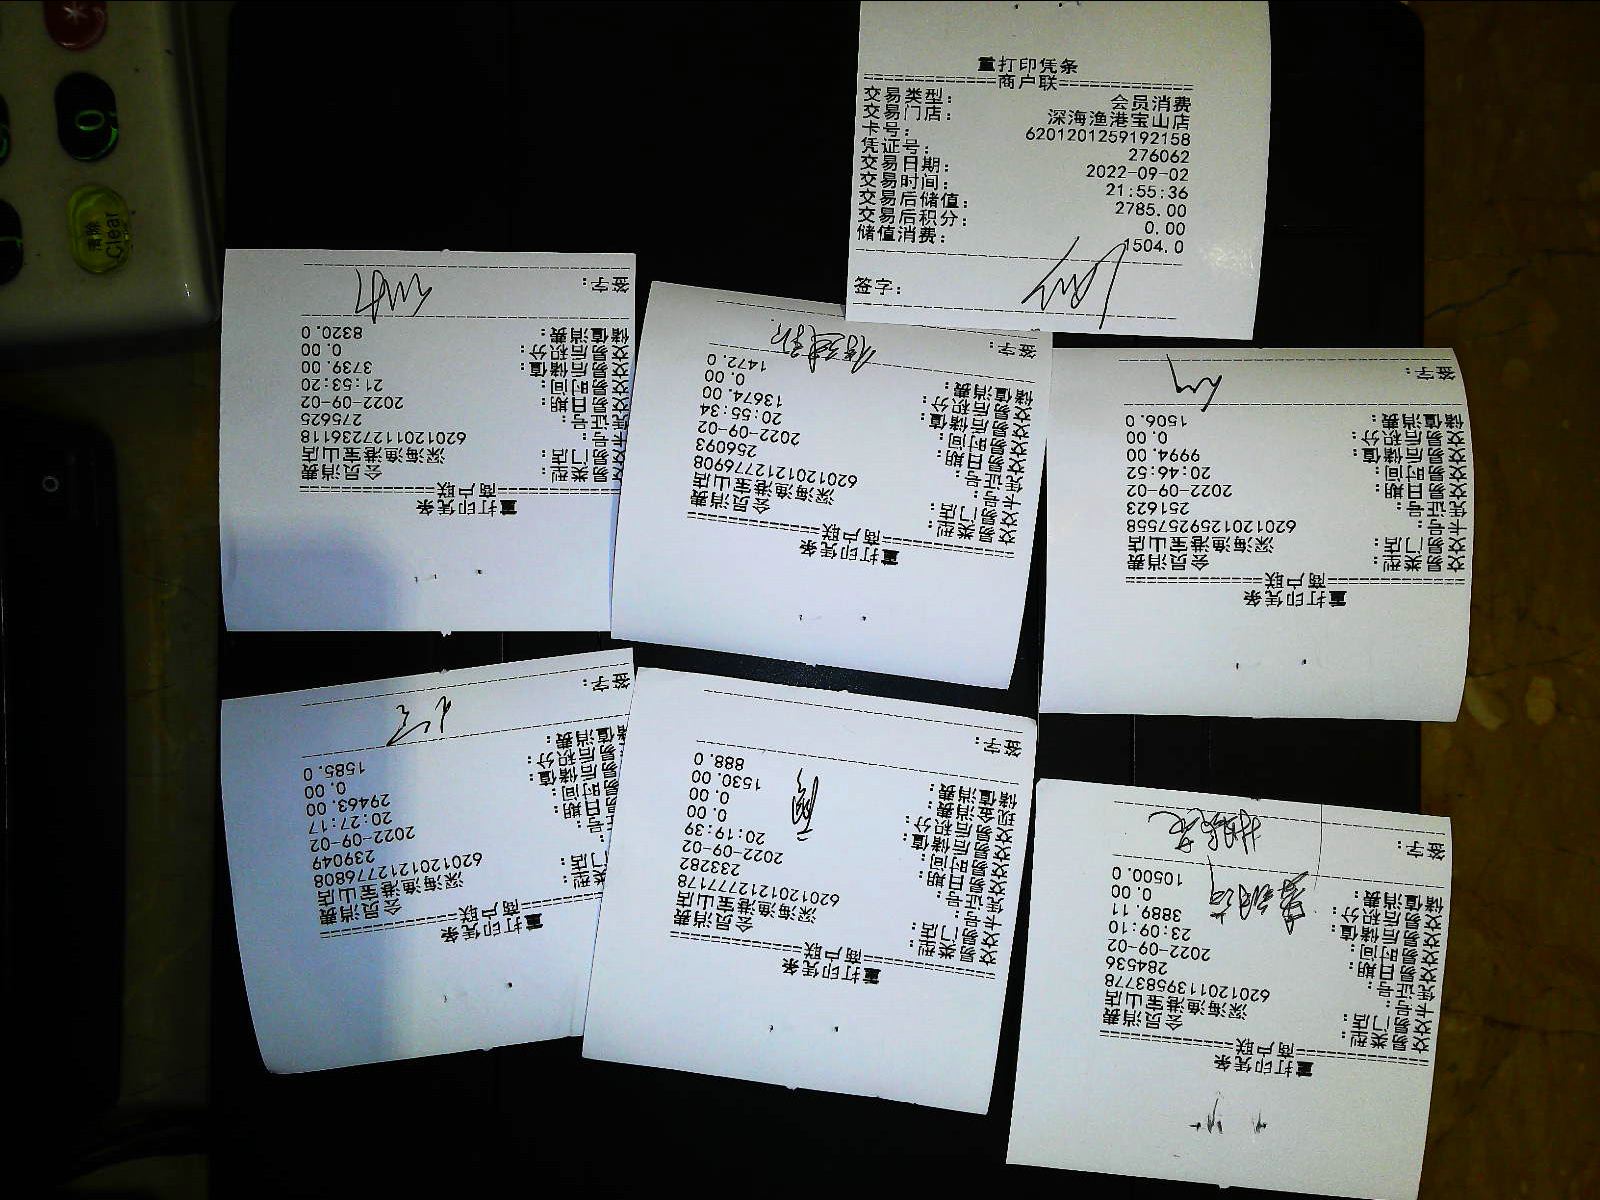 0
清除
Clear
重打印凭条
=============商户联=============
交易类型: 会员消费
交易门店: 深海渔港宝山店
卡号: 6201201259192158
凭证号: 276062
交易日期: 2022-09-02
交易时间: 21:55:36
交易后储值: 2785.00
交易后积分: 0.00
储值消费: 1504.0
签字:
重打印凭条
=============商户联=============
交易类型: 会员消费
交易门店: 深海渔港宝山店
卡号: 6201201127236118
凭证号: 275625
交易日期: 2022-09-02
交易时间: 21:53:20
交易后储值: 3739.00
交易后积分: 0.00
储值消费: 8320.0
签字:
重打印凭条
=============商户联=============
交易类型: 会员消费
交易门店: 深海渔港宝山店
卡号: 6201201212776908
凭证号: 256093
交易日期: 2022-09-02
交易时间: 20:55:34
交易后储值: 13674.00
交易后积分: 0.00
储值消费: 1472.0
签字:
重打印凭条
=============商户联=============
交易类型: 会员消费
交易门店: 深海渔港宝山店
卡号: 6201201259257558
凭证号: 251623
交易日期: 2022-09-02
交易时间: 20:46:52
交易后储值: 9994.00
交易后积分: 0.00
储值消费: 1506.0
签字:
重打印凭条
=============商户联=============
类型: 会员消费
门店: 深海渔港宝山店
: 6201201212776808
证号: 239049
易日期: 2022-09-02
易时间: 20:27:17
易后储值: 29463.00
易后积分: 0.00
储值消费: 1585.0
签字:
重打印凭条
=============商户联=============
交易类型: 会员消费
交易门店: 深海渔港宝山店
卡号: 6201201212777178
凭证号: 233282
交易日期: 2022-09-02
交易时间: 20:19:39
交易后储值: 0.00
交易后积分: 0.00
现金消费: 1530.00
储值消费: 888.0
签字:
重打印凭条
=============商户联=============
交易类型: 会员消费
交易门店: 深海渔港宝山店
卡号: 6201201139583778
凭证号: 284536
交易日期: 2022-09-02
交易时间: 23:09:10
交易后储值: 3889.11
交易后积分: 0.00
储值消费: 10500.0
签字: